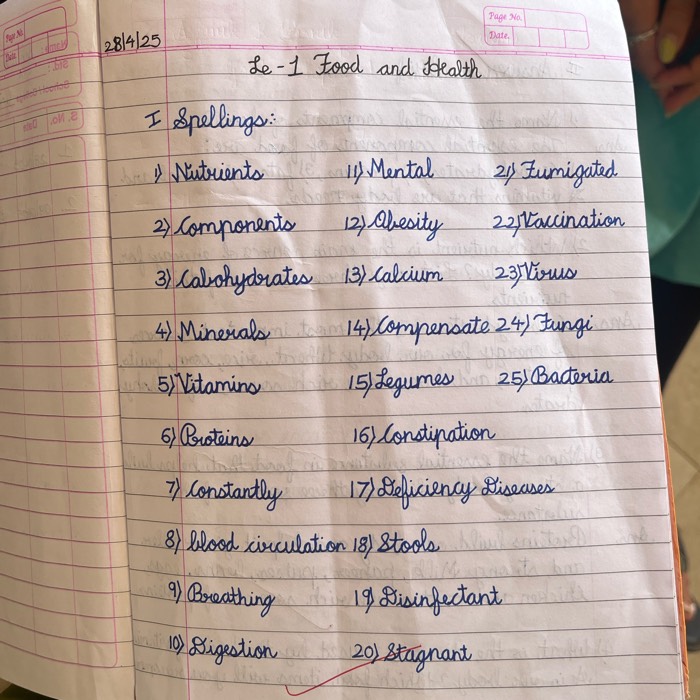 Page No.
Date.
28/4/25
Le-1 Food and Health
I Spellings:
1) Nutrients 11) Mental 21) Fumigated
2) Components 12) Obesity 22) Vaccination
3) Cabohydrates 13) Calcium 23) Virus
4) Minerals 14) Compensate 24) Fungi
5) Vitamins 15) Legumes 25) Bacteria
6) Proteins 16) Constipation
7) Constantly 17) Deficiency Diseases
8) blood circulation 18) Stools
9) Breathing 19) Disinfectant
10) Digestion 20) Stagnant